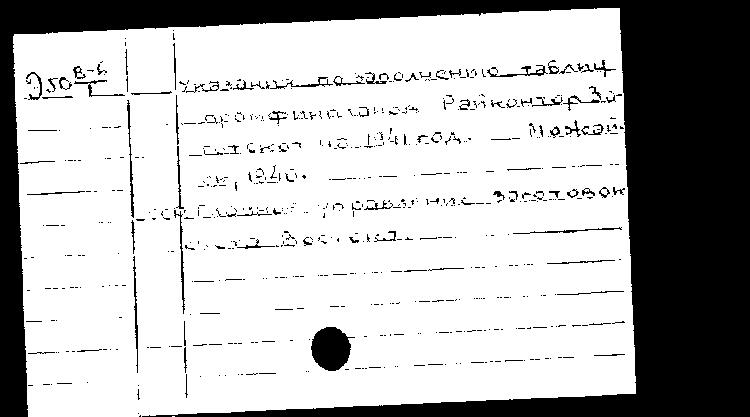 Э50 В-6
Т
Указания по заполнению таблиц
промфинплана Райконтор За-
готскот на 1941 год. — Можай-
ск, 1940.
Главное управление заготовок
скота Востока.